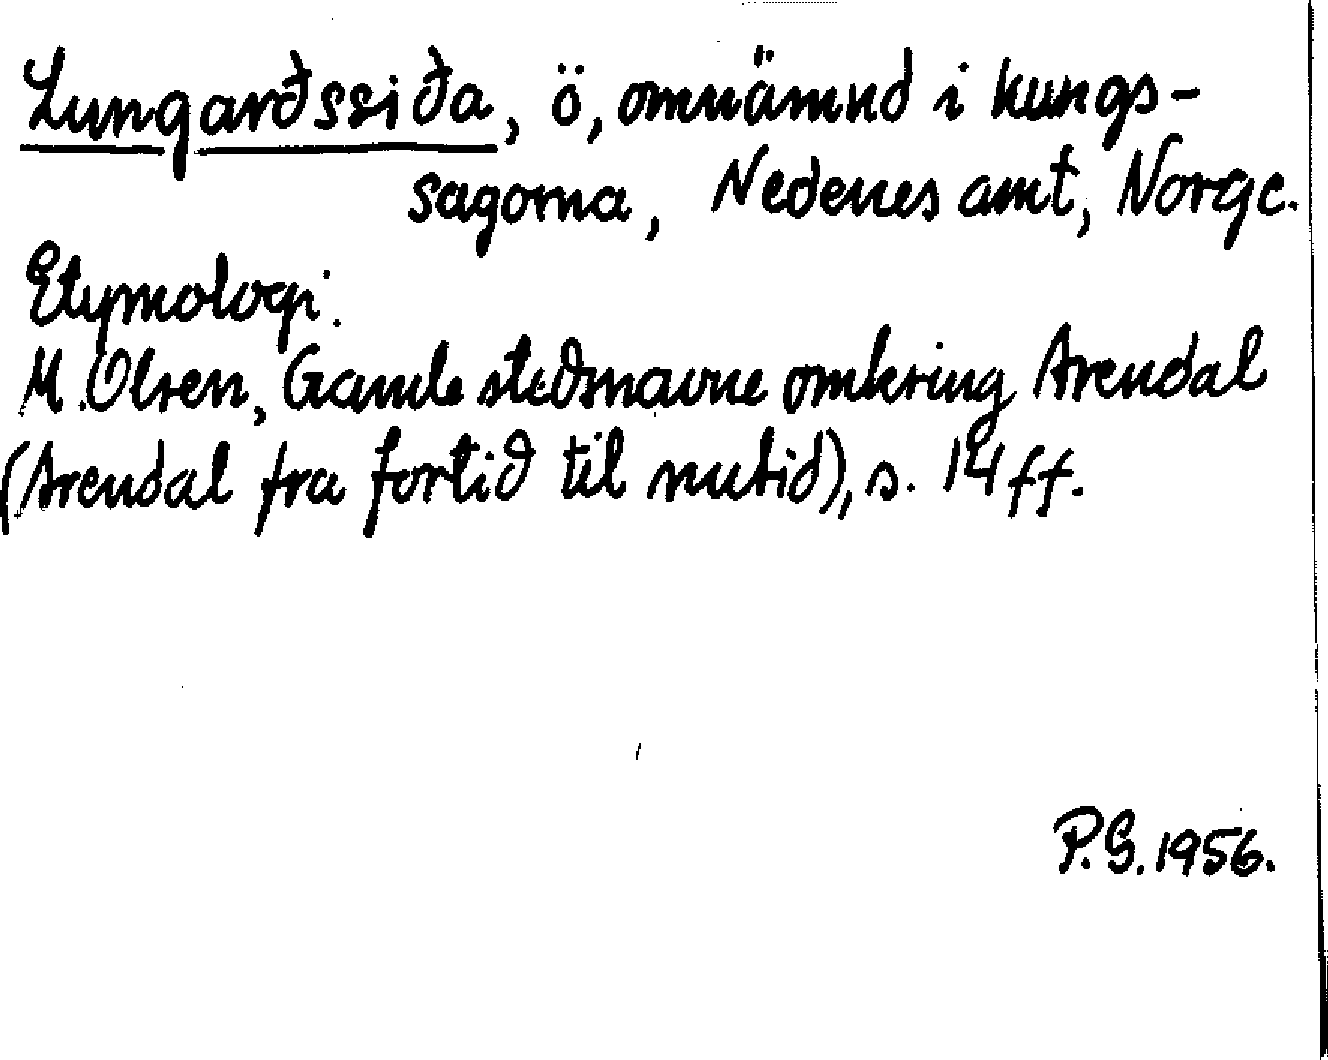 Lungarðssiða, ö, omnämnd i kungs-
sagorna, Nedenes amt, Norge.
Etymologi.
M. Olsen, Gamle stedsnavne omkring Arendal
(Arendal fra fortid til nutid), s. 14 ff.
P.S. 1956.